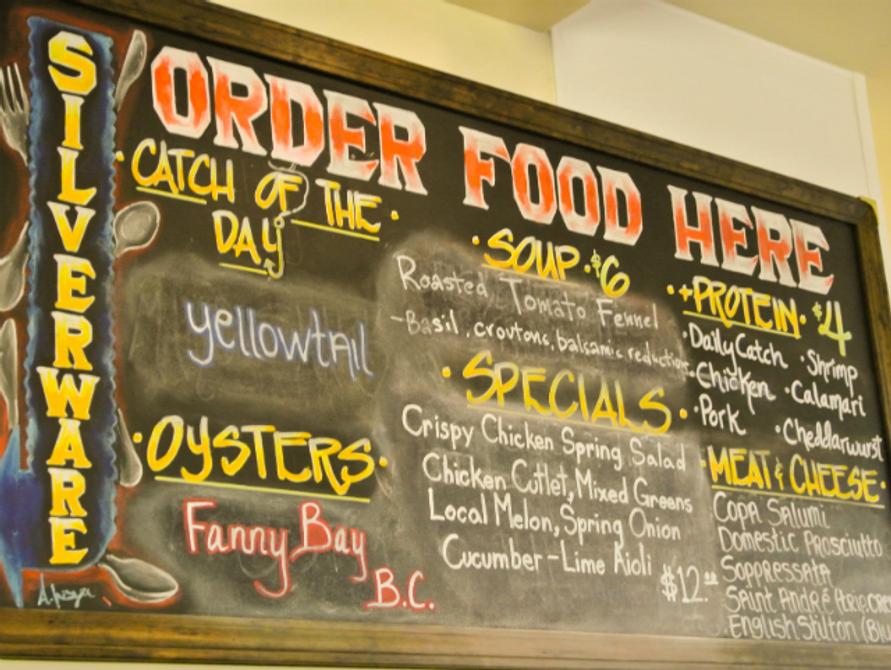 SILVERWARE
ORDER FOOD HERE
CATCH OF THE
DAY
yellowtail
OYSTERS
Fanny Bay
B.C.
SOUP $6
Roasted Tomato Fennel
-Basil, croutons, balsamic reduction
SPECIALS
Crispy Chicken Spring Salad
Chicken Cutlet, Mixed Greens
Local Melon, Spring Onion
Cucumber-Lime Aioli
$12.00
+PROTEIN $4
Daily Catch
Shrimp
Chicken
Calamari
Pork
Cheddarwurst
MEAT & CHEESE
Copa Salumi
Domestic Prosciutto
Soppressata
Saint André
English Stilton (Blu